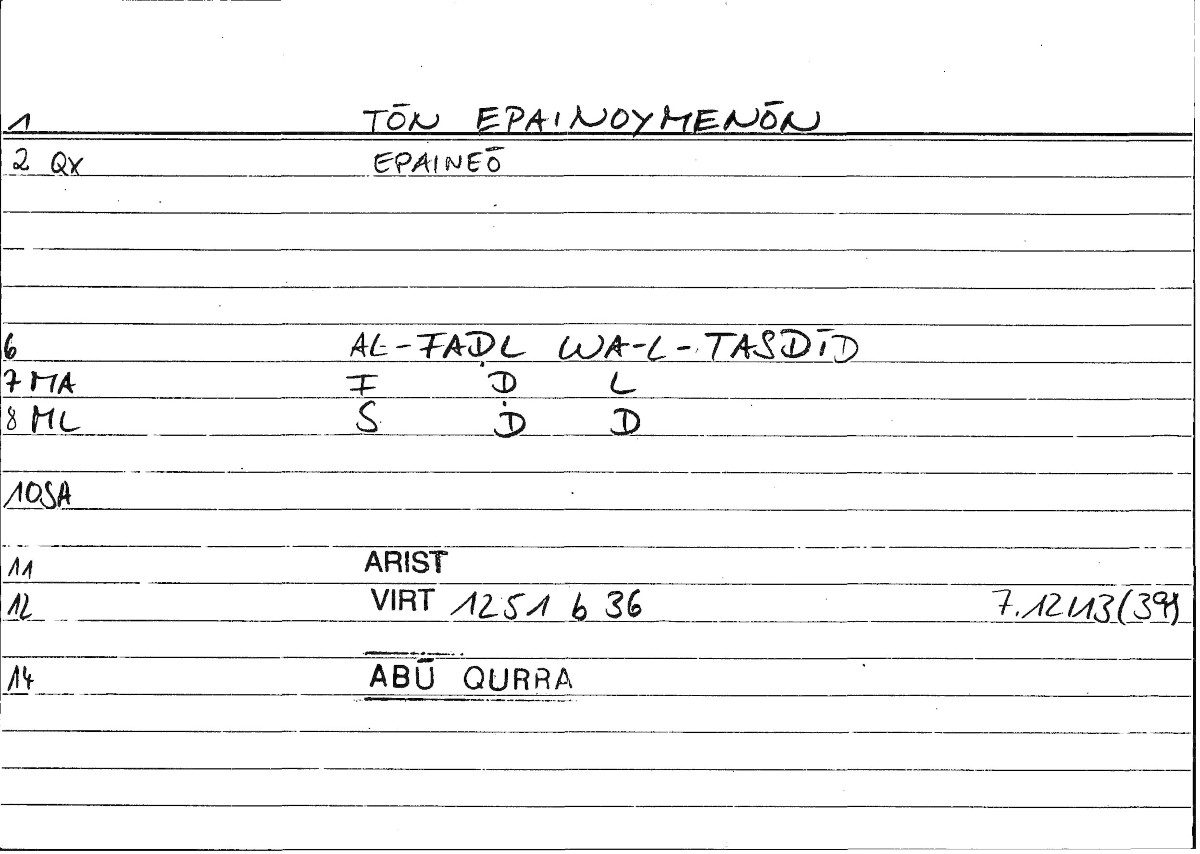 1 TŌN EPAINOYMENŌN
2 QX EPAINEŌ
6 AL-FAḌL WA-L-TASDĪD
7 MA F Ḍ L
8 ML S Ḍ D
10SA
11 ARIST
12 VIRT 1251 b 36 7.12/13(39)
14 ABŪ QURRA